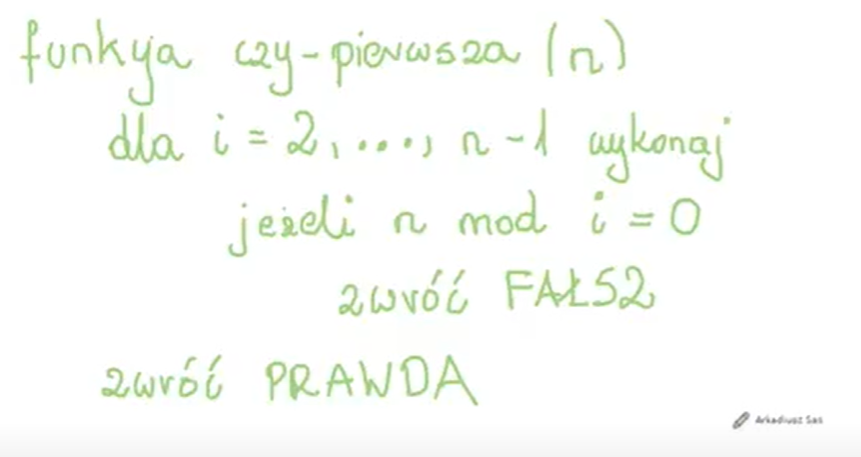 funkcja czy-pierwsza (n)
dla i = 2, ..., n-1 wykonaj
jeżeli n mod i = 0
zwróć FAŁSZ
zwróć PRAWDA
Arkadiusz Sas